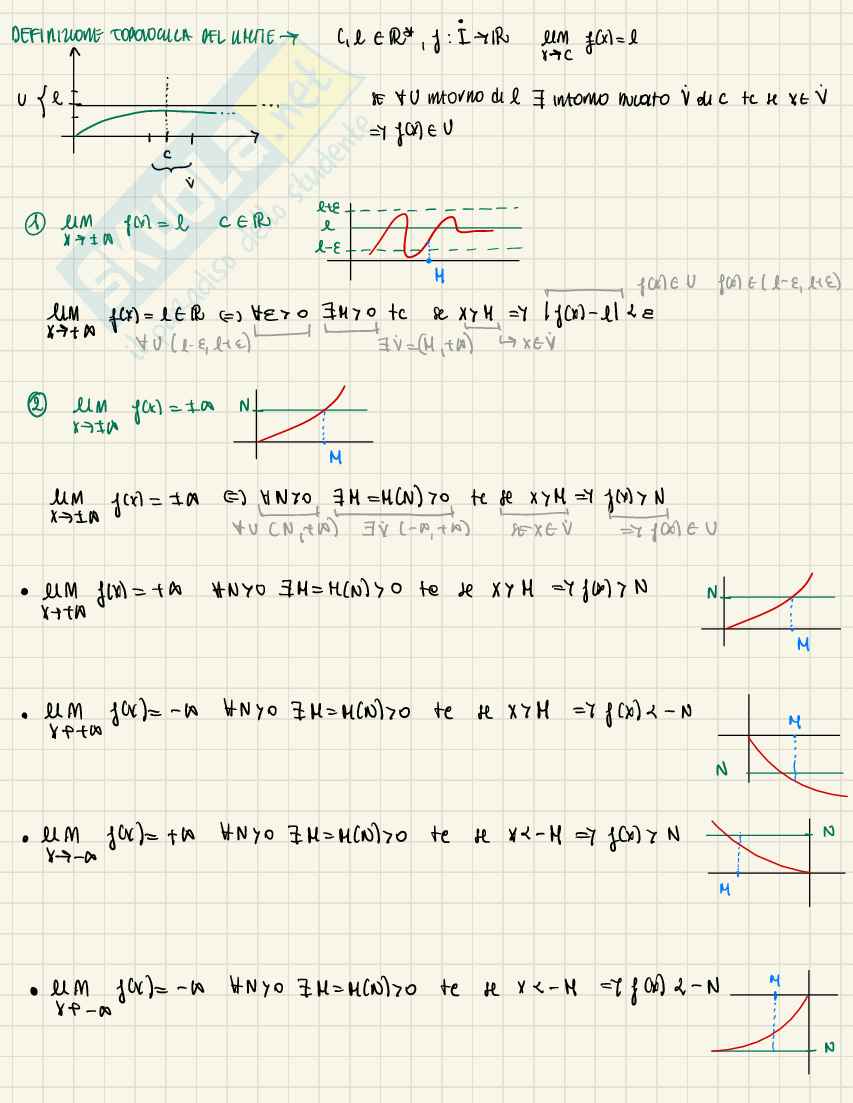 DEFINIZIONE TOPOLOGICA DEL LIMITE → C, l ∈ ℝ*, f : İ → ℝ lim x→c f(x) = l
U { l ...
se ∀U intorno di l ∃ intorno bucato V̇ di c tc se x ∈ V̇
⇒ f(x) ∈ U
c
V̇
① lim x→±∞ f(x) = l c ∈ ℝ
l+ε
l
l-ε
M
f(x) ∈ U f(x) ∈ (l-ε, l+ε)
lim x→+∞ f(x) = l ∈ ℝ ⇔ ∀ε > 0 ∃M > 0 tc se x > M ⇒ |f(x) - l| < ε
∀U (l-ε, l+ε) ∃V̇ = (M, +∞) ↳ x ∈ V̇
② lim x→±∞ f(x) = ±∞ N
M
lim x→±∞ f(x) = ±∞ ⇔ ∀N>0 ∃M = M(N) > 0 tc se x > M ⇒ f(x) > N
∀U (N, +∞) ∃V̇ (-∞, +∞) se x ∈ V̇ ⇒ f(x) ∈ U
• lim x→+∞ f(x) = +∞ ∀N>0 ∃M = M(N) > 0 tc se x > M ⇒ f(x) > N
N
M
• lim x→+∞ f(x) = -∞ ∀N>0 ∃M = M(N) > 0 tc se x > M ⇒ f(x) < -N
M
N
• lim x→-∞ f(x) = +∞ ∀N>0 ∃M = M(N) > 0 tc se x < -M ⇒ f(x) > N
N
M
• lim x→-∞ f(x) = -∞ ∀N>0 ∃M = M(N) > 0 tc se x < -M ⇒ f(x) < -N
M
N
SKUOLA.net
il paradiso dello studente